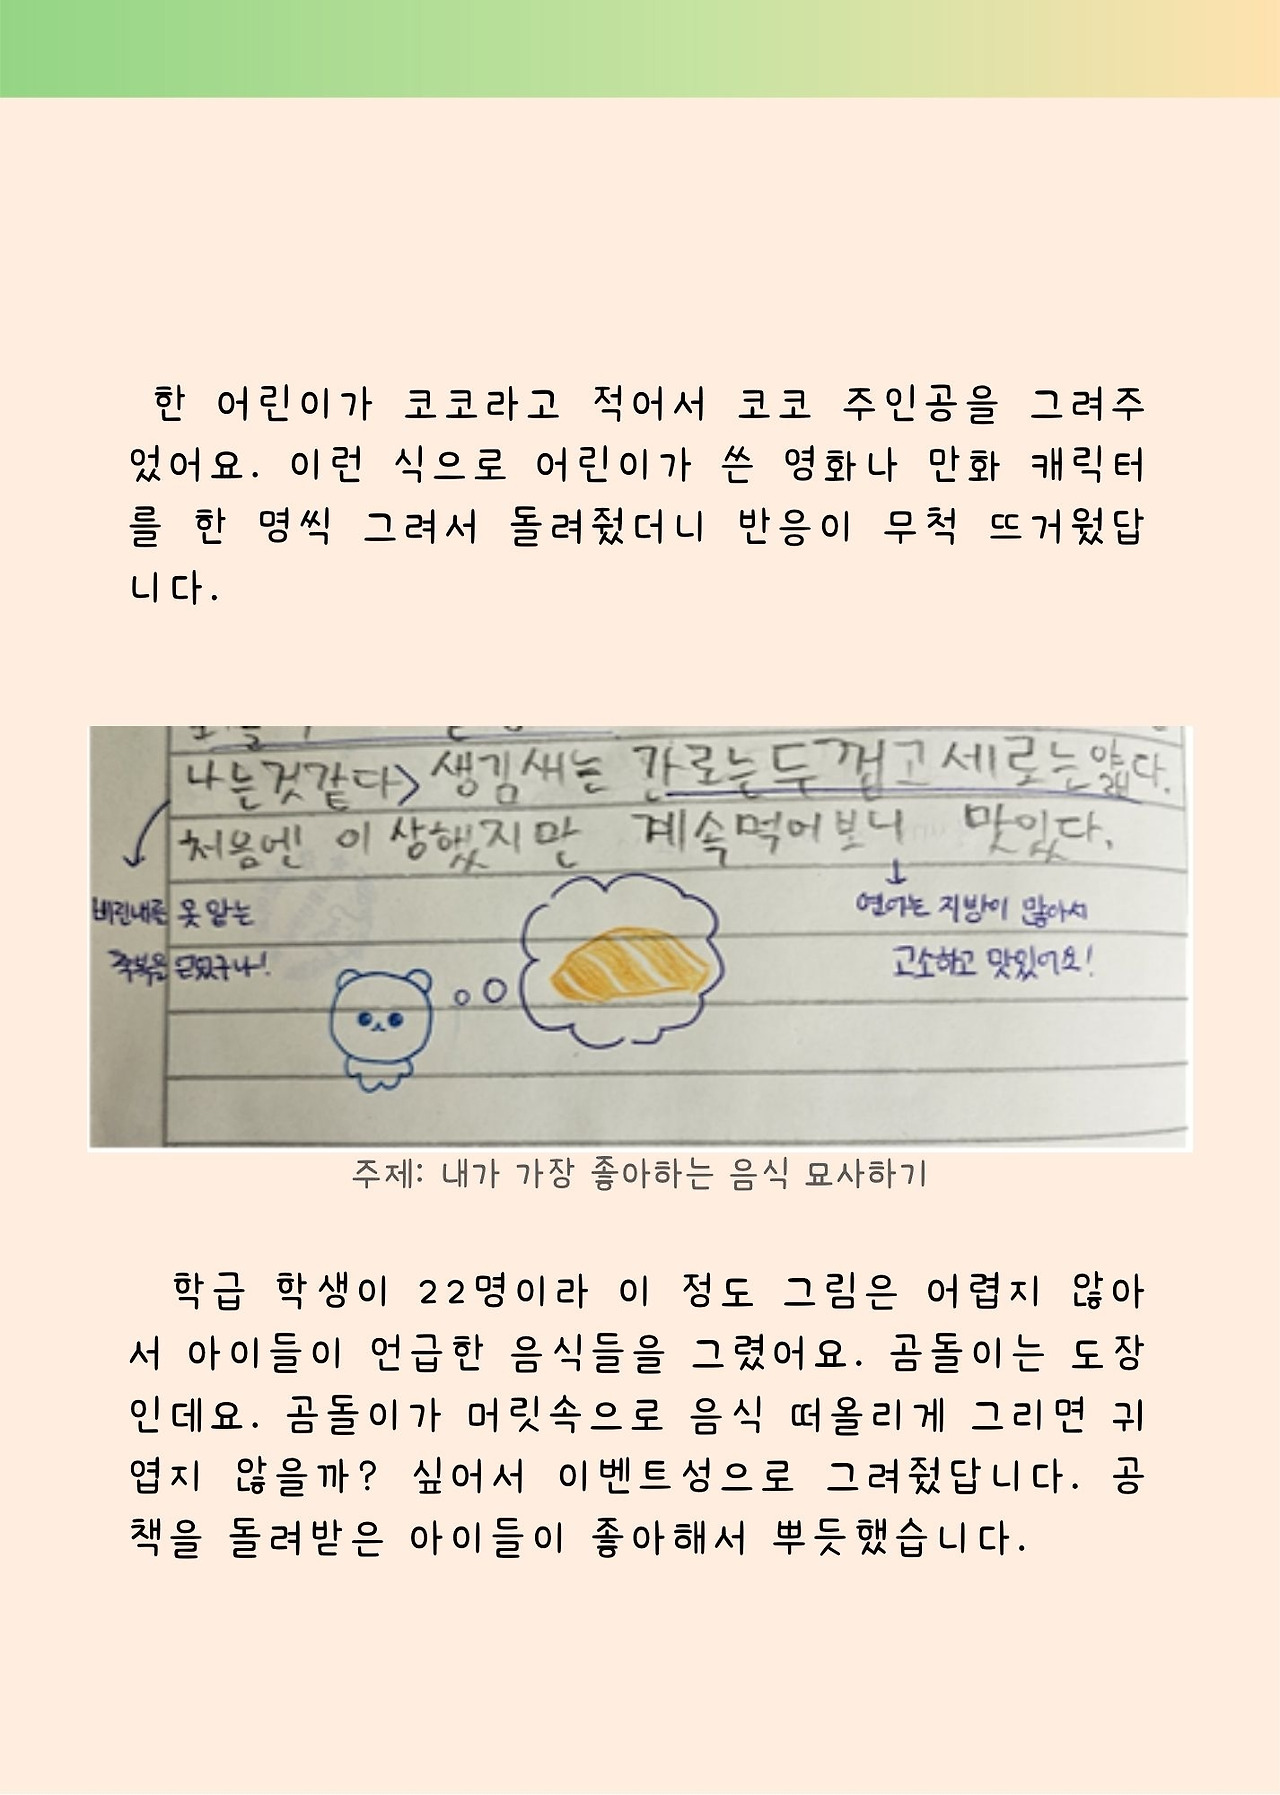 한 어린이가 코코라고 적어서 코코 주인공을 그려주
었어요. 이런 식으로 어린이가 쓴 영화나 만화 캐릭터
를 한 명씩 그려서 돌려줬더니 반응이 무척 뜨거웠답
니다.
나는것같다> 생김새는 간로는두껍고세로는얇다.
처음엔 이상했지만 계속먹어보니 맛있다.
비린내를 못 맡는
축복을 받았구나!
연어는 지방이 많아서
고소하고 맛있어요!
주제: 내가 가장 좋아하는 음식 묘사하기
학급 학생이 22명이라 이 정도 그림은 어렵지 않아
서 아이들이 언급한 음식들을 그렸어요. 곰돌이는 도장
인데요. 곰돌이가 머릿속으로 음식 떠올리게 그리면 귀
엽지 않을까? 싶어서 이벤트성으로 그려줬답니다. 공
책을 돌려받은 아이들이 좋아해서 뿌듯했습니다.